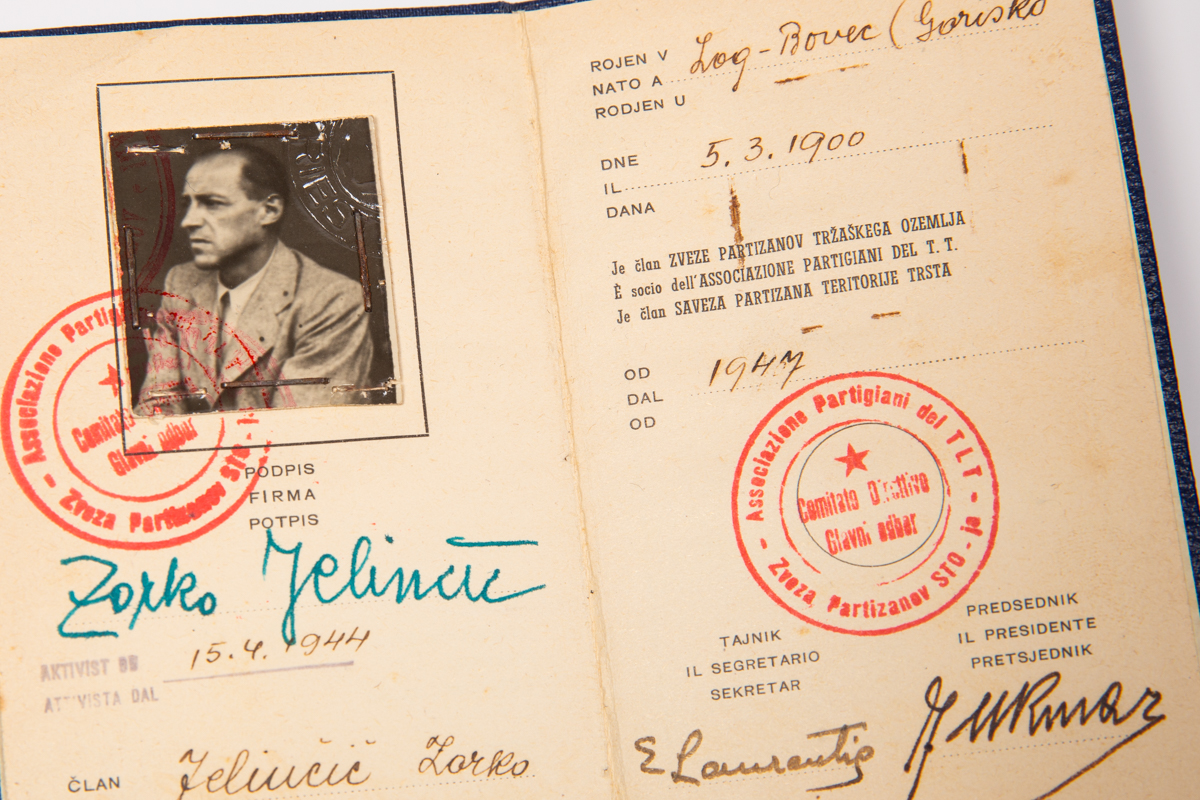 Associazione Partigi
Comitato
Glavni odbor
Zveza Partizanov STO-ja
PODPIS
FIRMA
POTPIS
Zorko Jelinčič
15.4.1944
AKTIVIST
ATTIVISTA DAL
ČLAN Jelinčič Zorko
ROJEN V
NATO A Log-Bovec (Gorisko
RODJEN U
DNE
IL 5.3.1900
DANA
Je član ZVEZE PARTIZANOV TRŽAŠKEGA OZEMLJA
È socio dell'ASSOCIAZIONE PARTIGIANI DEL T. T.
Je član SAVEZA PARTIZANA TERITORIJE TRSTA
OD
DAL 1947
OD
Associazione Partigiani del TLT
Comitato Direttivo
Glavni odbor
Zveza Partizanov STO-ja
TAJNIK
IL SEGRETARIO
SEKRETAR
E Laurentig
PREDSEDNIK
IL PRESIDENTE
PRETSJEDNIK
J Ukmar